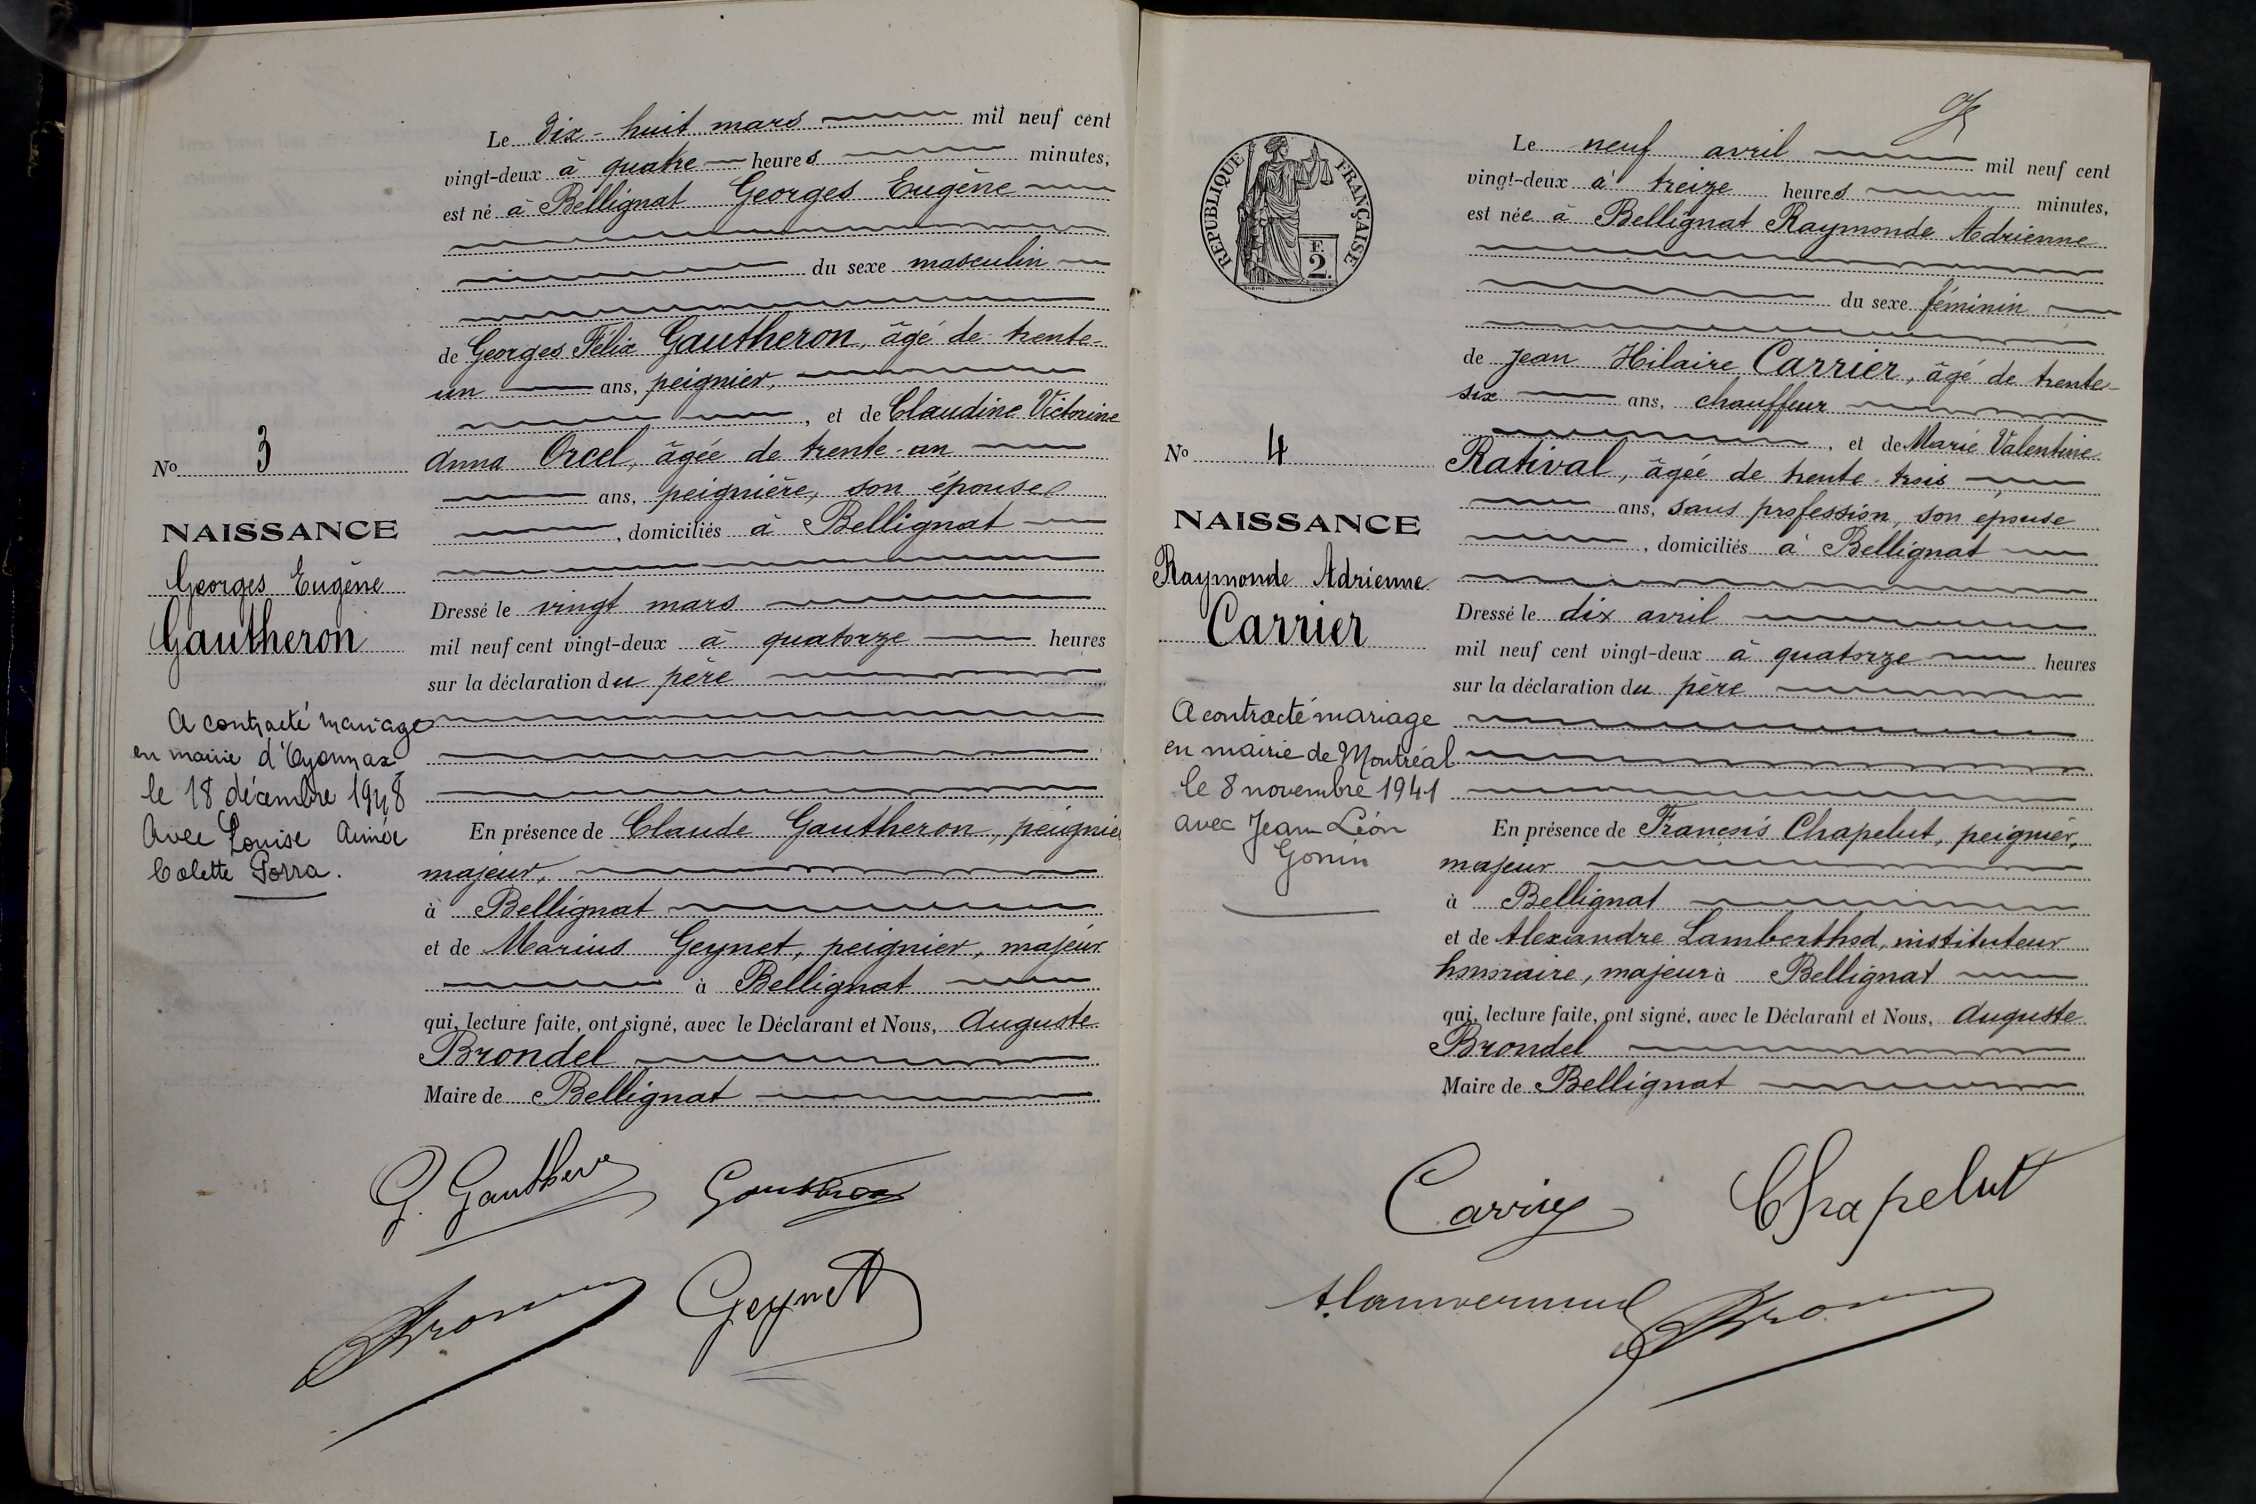 Le dix-huit mars mil neuf cent
vingt-deux à quatre heures minutes,
est né à Bellignat Georges Eugène
du sexe masculin
de Georges Félix Gautheron, âgé de trente-
un ans, peignier,
, et de Claudine Victorine
Anna Orcel, âgée de trente-un
ans, peignière, son épouse
, domiciliés à Bellignat
Dressé le vingt mars
mil neuf cent vingt-deux à quatorze heures
sur la déclaration du père
En présence de Claude Gautheron, peignier
majeur,
à Bellignat
et de Marius Geynet, peignier, majeur
à Bellignat
qui, lecture faite, ont signé, avec le Déclarant et Nous, Auguste
Brondel
Maire de Bellignat
No 3
NAISSANCE
Georges Eugène
Gautheron
A contracté mariage
en mairie d'Oyonnax
le 18 décembre 1948
Avec Louise Aimée
Colette Porra.
G. Gautheron Gautheron
Geynet
RÉPUBLIQUE FRANÇAISE
F.
2.
Le neuf avril mil neuf cent
vingt-deux à treize heures minutes,
est née à Bellignat Raymonde Adrienne
du sexe féminin
de Jean Hilaire Carrier, âgé de trente-
six ans, chauffeur
, et de Marie Valentine
Rativat, âgée de trente-trois
ans, sans profession, son épouse
, domiciliés à Bellignat
Dressé le dix avril
mil neuf cent vingt-deux à quatorze heures
sur la déclaration du père
En présence de François Chapelut, peignier,
majeur
à Bellignat
et de Alexandre Lamberthod, instituteur
honoraire, majeur à Bellignat
qui, lecture faite, ont signé, avec le Déclarant et Nous, Auguste
Brondel
Maire de Bellignat
No 4
NAISSANCE
Raymonde Adrienne
Carrier
A contracté mariage
en mairie de Montréal
le 8 novembre 1941
avec Jean Léon
Gonin
Carrier Chapelut